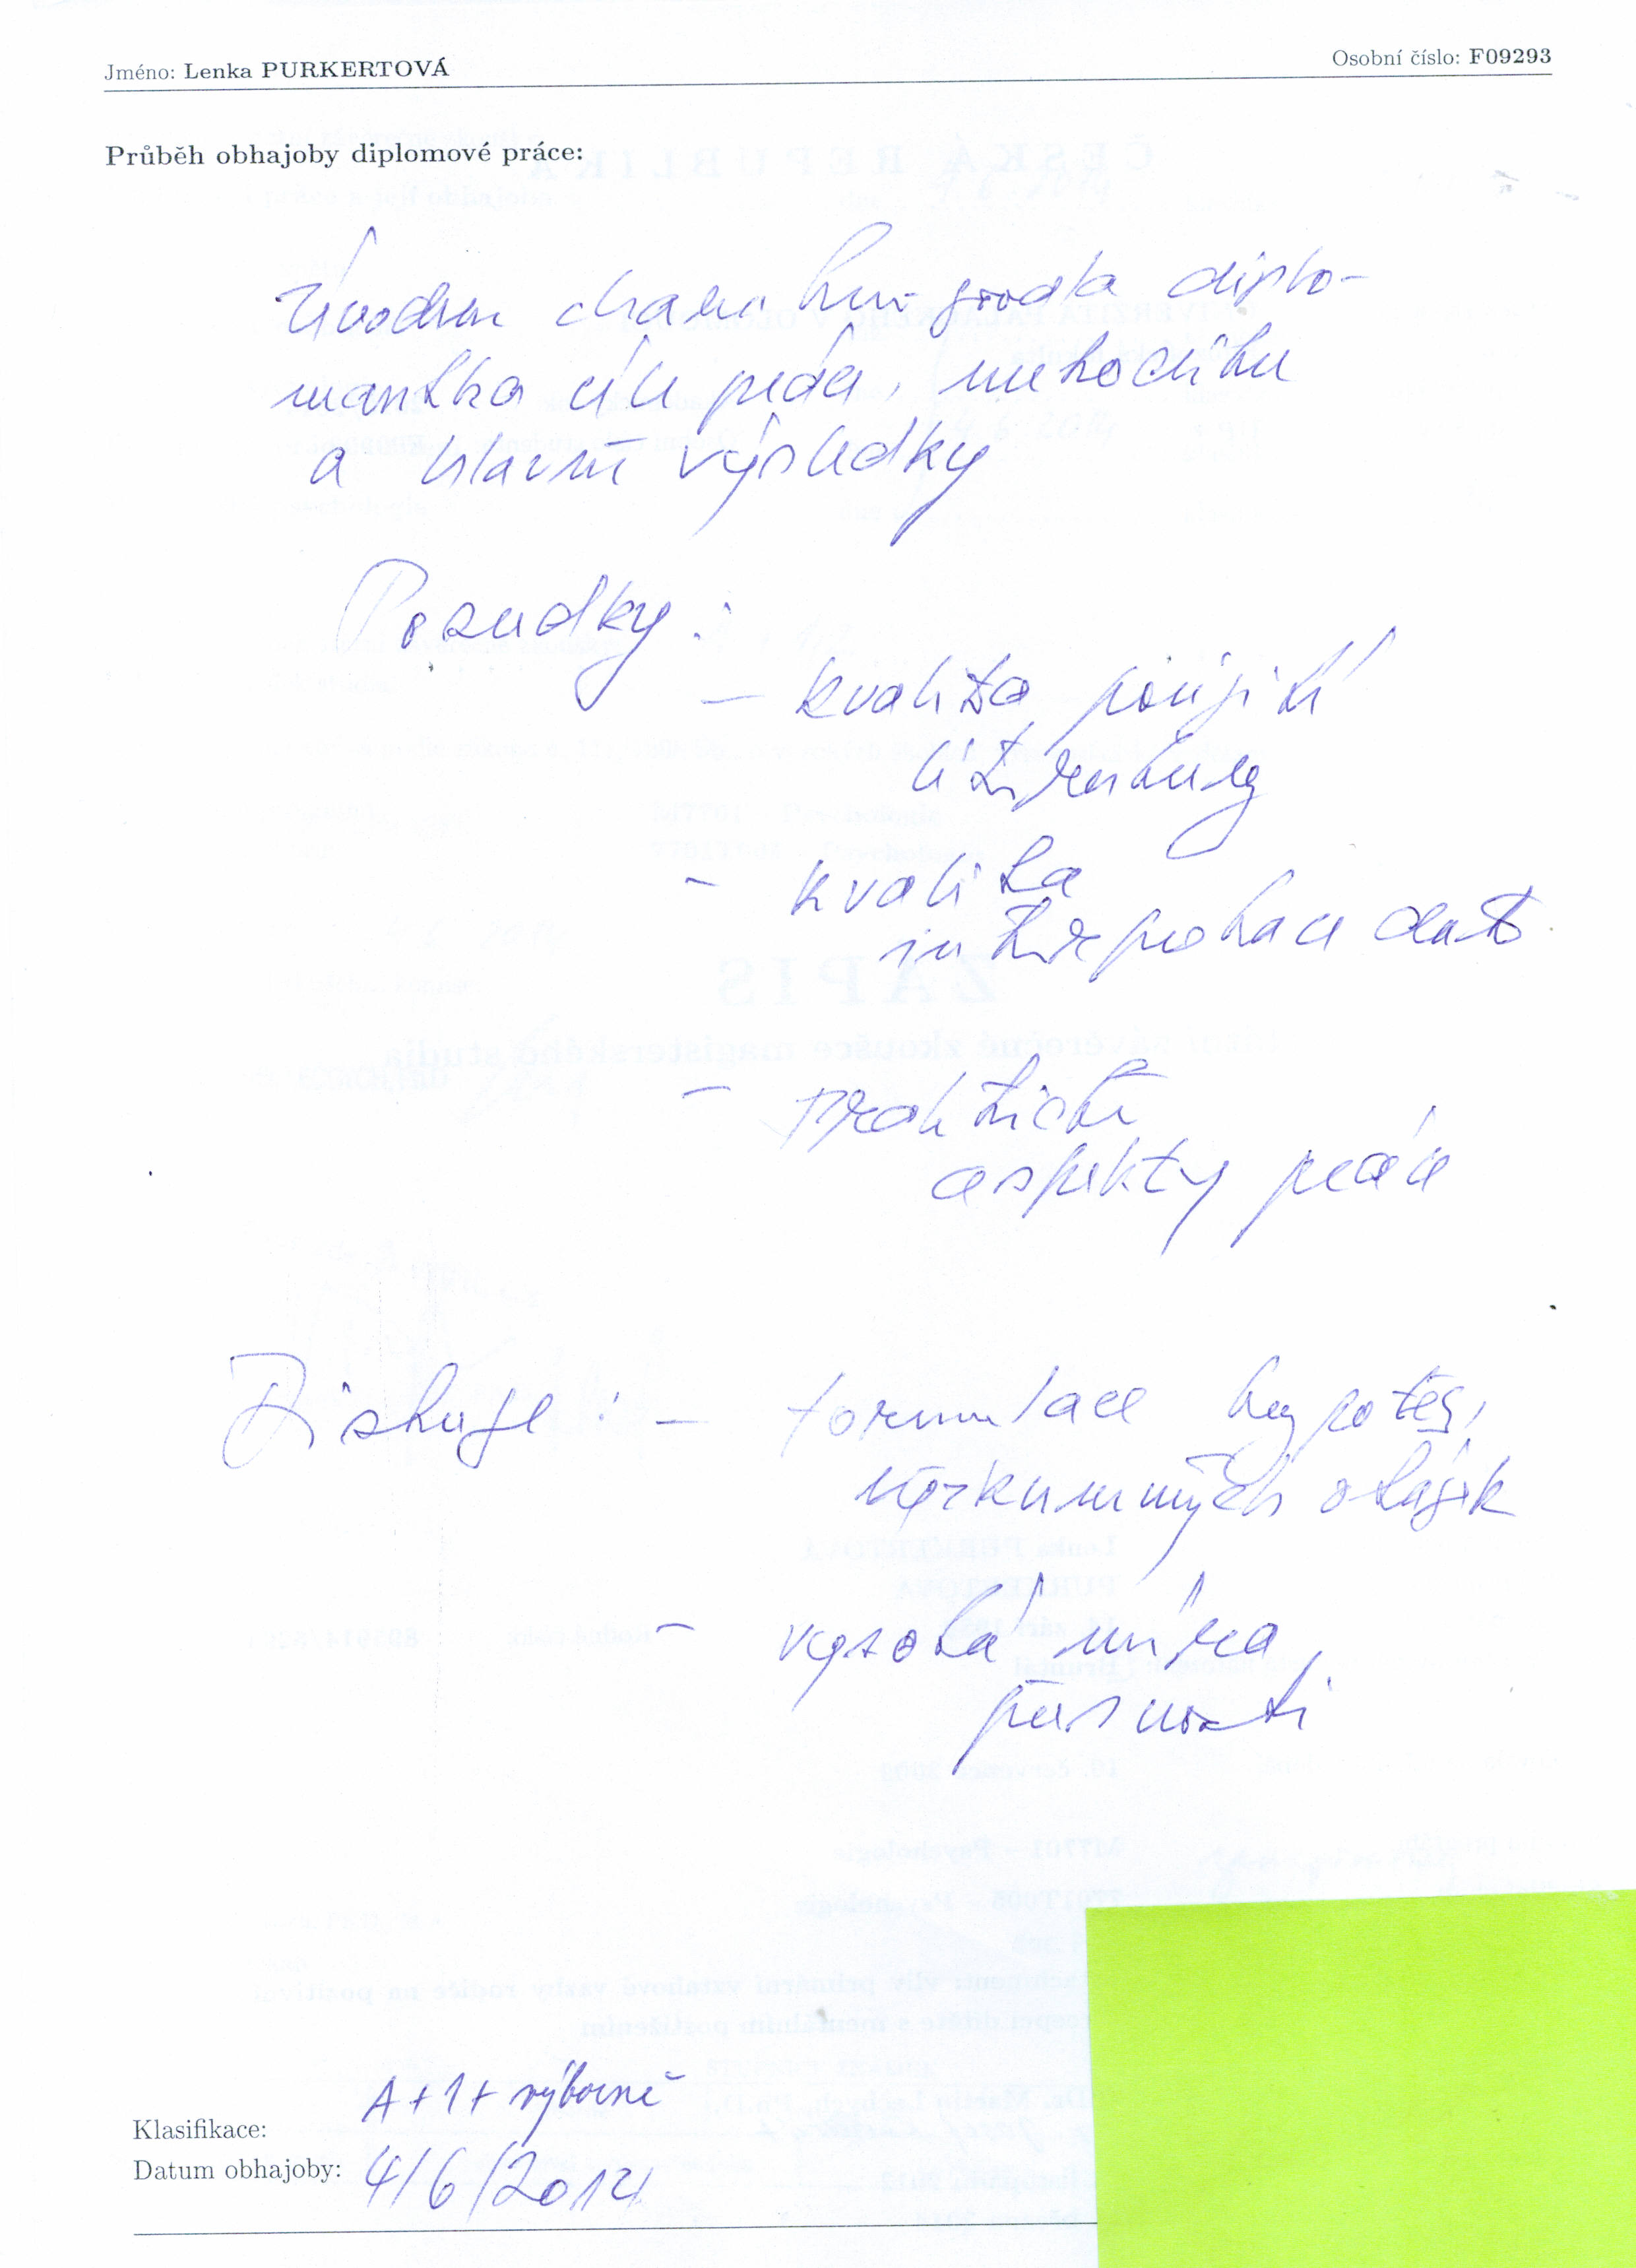 Jméno: Lenka PURKERTOVÁ
Osobní číslo: F09293
Průběh obhajoby diplomové práce:
Úvodem diplo-
mantka cíle práce, metodiku
a hlavní výsledky
Posudky:
- kvalita použité
literatury
- kvalita
interpretace dat
- praktické
aspekty práce
Diskuze: - formulace hypotéz,
výzkumných otázek
- vysoká míra
Klasifikace: A+1+ výborně
Datum obhajoby: 4/6/2014